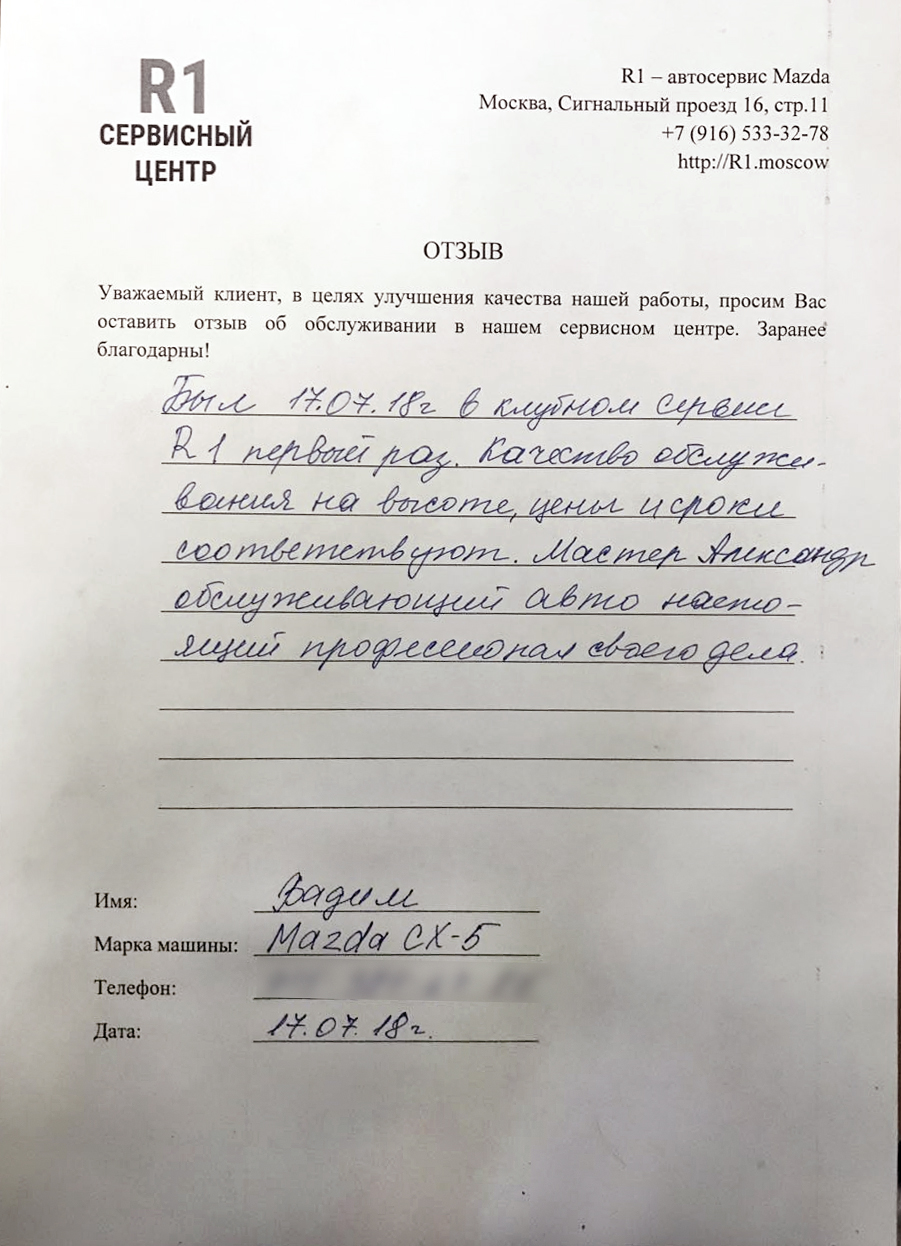 R1
СЕРВИСНЫЙ
ЦЕНТР
R1 – автосервис Mazda
Москва, Сигнальный проезд 16, стр.11
+7 (916) 533-32-78
http://R1.moscow
ОТЗЫВ
Уважаемый клиент, в целях улучшения качества нашей работы, просим Вас
оставить отзыв об обслуживании в нашем сервисном центре. Заранее
благодарны!
Был 17.07.18г в клубном сервисе
R1 первый раз. Качество обслужи-
вания на высоте, цены и сроки
соответствуют. Мастер Александр
обслуживающий авто насто-
ящий профессионал своего дела.
Имя: Вадим
Марка машины: Mazda CX-5
Телефон:
Дата: 17.07.18г.